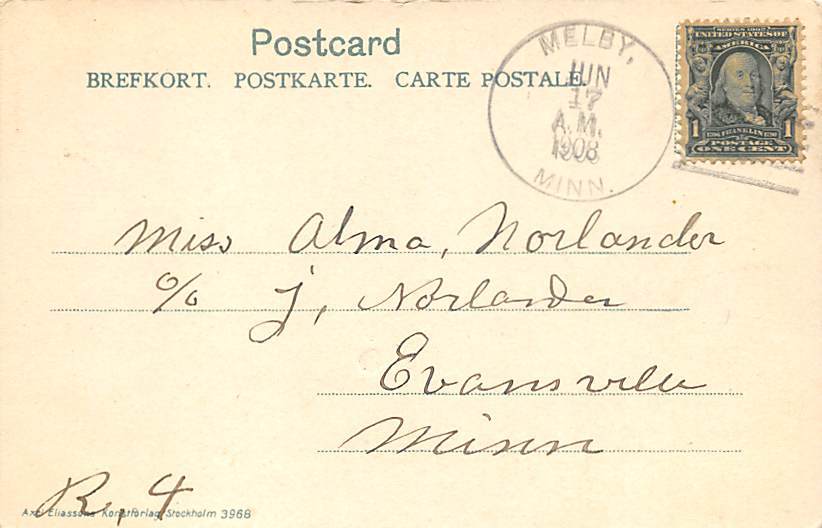 Postcard
BREFKORT. POSTKARTE. CARTE POSTALE.
MELBY,
JUN
17
A.M.
1908
MINN.
SERIES 1902
UNITED STATES OF
AMERICA
1 FRANKLIN 1
POSTAGE
ONE CENT
Miss Alma, Norlander
c/o J, Norlander
Evansville
Minn
R, 4
Axel Eliassons Konstförlag, Stockholm 3968